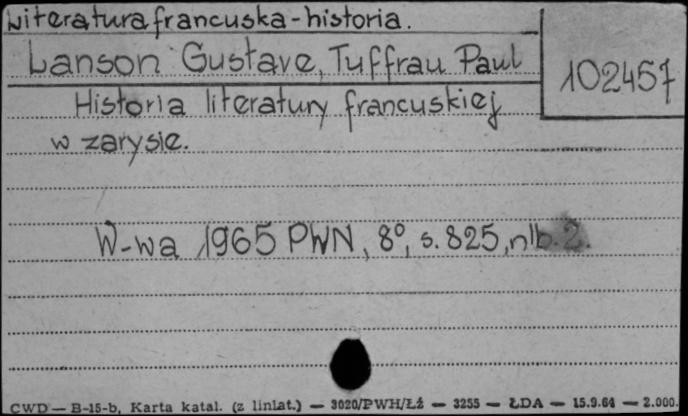 Literatura francuska - historia.
Lanson Gustave, Tuffrau Paul
102457
Historia literatury francuskiej
w zarysie.
W-wa 1965 PWN, 8°, s. 825, nlb. 2.
CWD — B-15-b, Karta katal. (z liniat.) — 3020/PWH/Łź — 3255 — ŁDA — 15.9.64 — 2.000.